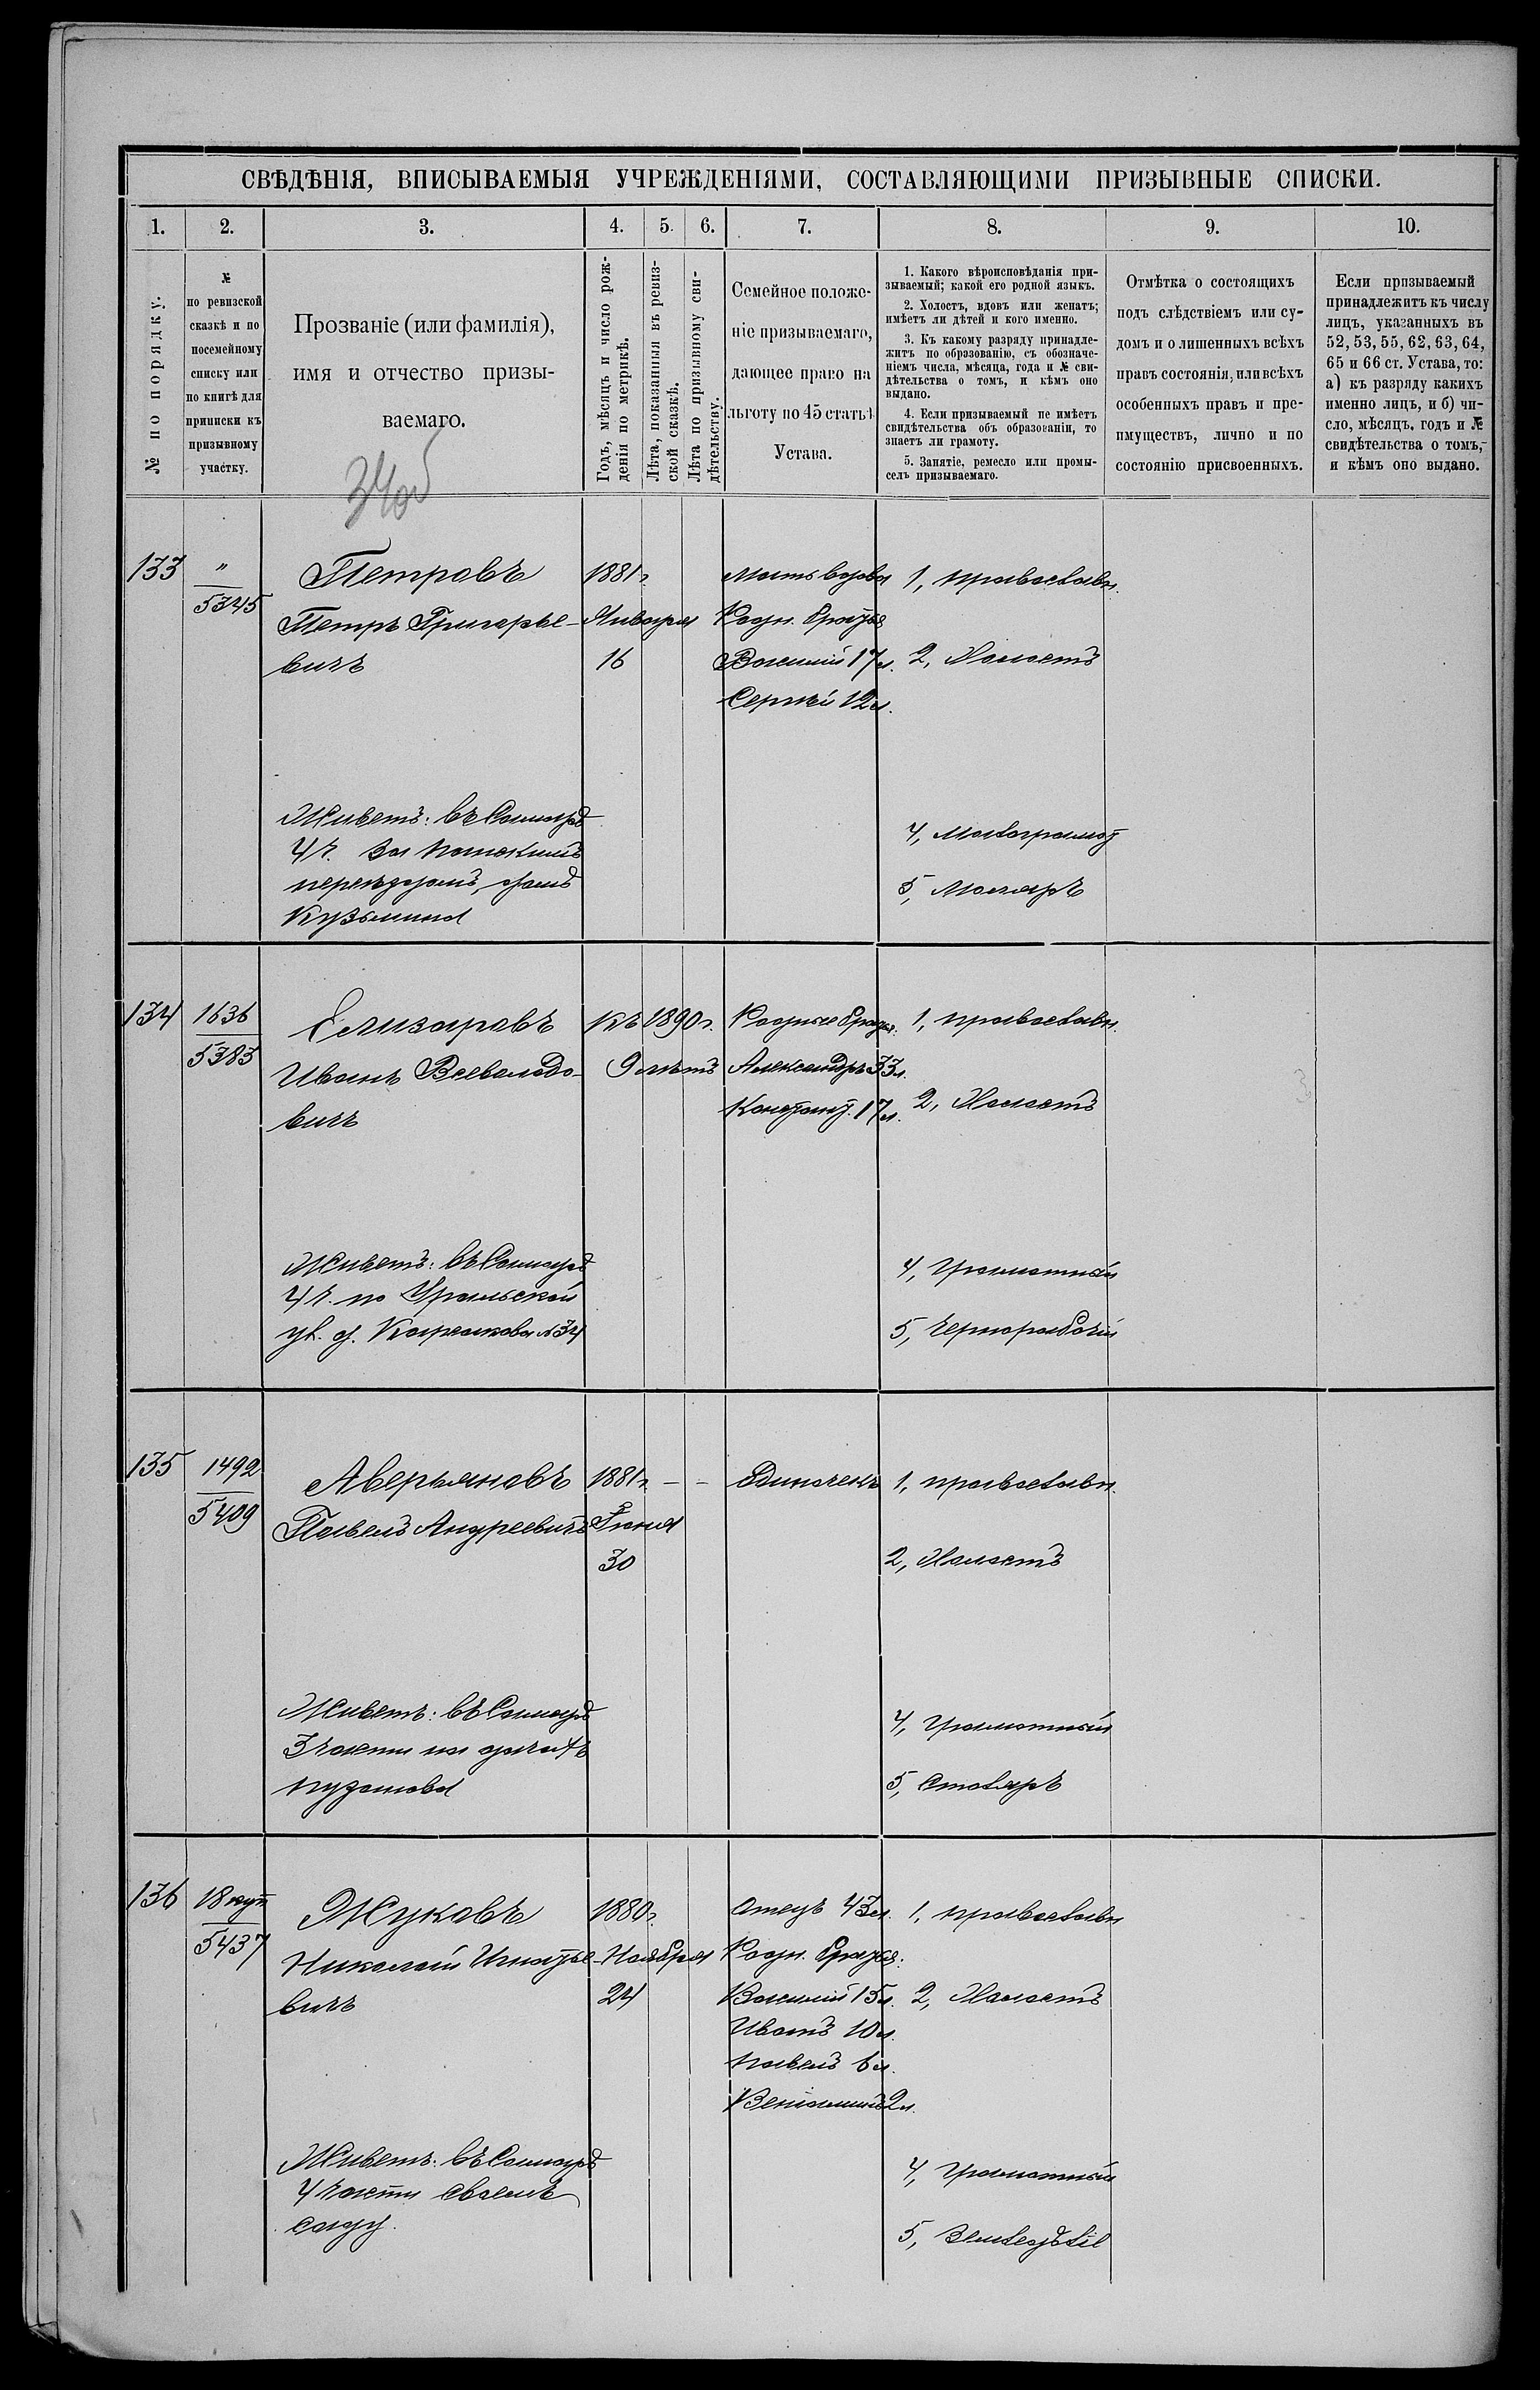 СВѢДѢНІЯ, ВПИСЫВАЕМЫЯ УЧРЕЖДЕНІЯМИ, СОСТАВЛЯЮЩИМИ ПРИЗЫВНЫЕ СПИСКИ.
1.
2.
3.
4.
5.
6.
7.
8.
9.
10.
№ по порядку.
№
по ревизской
сказкѣ и по
посемейному
списку или
по книгѣ для
приписки къ
призывному
участку.
Прозваніе (или фамилія),
имя и отчество призы-
ваемаго.
Годъ, мѣсяцъ и число рож-
денія по метрикѣ.
Лѣта, показанныя въ ревиз-
ской сказкѣ.
Лѣта по призывному сви-
дѣтельству.
Семейное положе-
ніе призываемаго,
дающее право на
льготу по 45 статьѣ
Устава.
1. Какого вѣроисповѣданія при-
зываемый; какой его родной языкъ.
2. Холостъ, вдовъ или женатъ;
имѣетъ ли дѣтей и кого именно.
3. Къ какому разряду принадле-
житъ по образованію, съ обозначе-
ніемъ числа, мѣсяца, года и № сви-
дѣтельства о томъ, и кѣмъ оно
выдано.
4. Если призываемый не имѣетъ
свидѣтельства объ образованіи, то
знаетъ ли грамоту.
5. Занятіе, ремесло или промы-
селъ призываемаго.
Отмѣтка о состоящихъ
подъ слѣдствіемъ или су-
домъ и о лишенныхъ всѣхъ
правъ состоянія, или всѣхъ
особенныхъ правъ и пре-
имуществъ, лично и по
состоянію присвоенныхъ.
Если призываемый
принадлежитъ къ числу
лицъ, указанныхъ въ
52, 53, 55, 62, 63, 64,
65 и 66 ст. Устава, то:
а) къ разряду какихъ
именно лицъ, и б) чи-
сло, мѣсяцъ, годъ и №
свидѣтельства о томъ,
и кѣмъ оно выдано.
133
"
5345
Петровъ
Петръ Григорье-
вичъ
1881 г.
Января
16
Мать вдова
Родн. братья
Василій 17 л.
Сергѣй 12 л.
1, православн.
2, Холостъ
Живетъ: въ Самарѣ
4 ч. за
переѣздомъ, домъ
Кузьмина
4, малограмот
5, Маляръ
134
1636
5383
Елизаровъ
Иванъ Всеволодо-
вичъ
Къ 1890 г.
9 лѣтъ
Родные братья:
Александръ 33 л.
Констант. 17 л.
1, православн.
2, Холостъ
Живетъ: въ Самарѣ
4 ч. по Уральской
ул. д. № 34
4, Грамотный
5, Чернорабочій
135
1492
5409
Аверьяновъ
Павелъ Андреевичъ
1881 г. - -
Іюня
30
Одиночекъ
1, православн.
2, Холостъ
Живетъ: въ Самарѣ
3 части на дачѣ
4, Грамотный
5, Столяръ
136
18 куп
5437
Жуковъ
Николай Игнатье-
вичъ
1880 г.
Ноября
24
Отецъ 43 л.
Родн. братья:
Василій 15 л.
Иванъ 10 л.
Павелъ 6 л.
Веніаминъ 2 л.
1, православн
2, Холостъ
Живетъ: въ Самарѣ
4 части своемъ
саду.
4, Грамотный
5, Земледѣліе